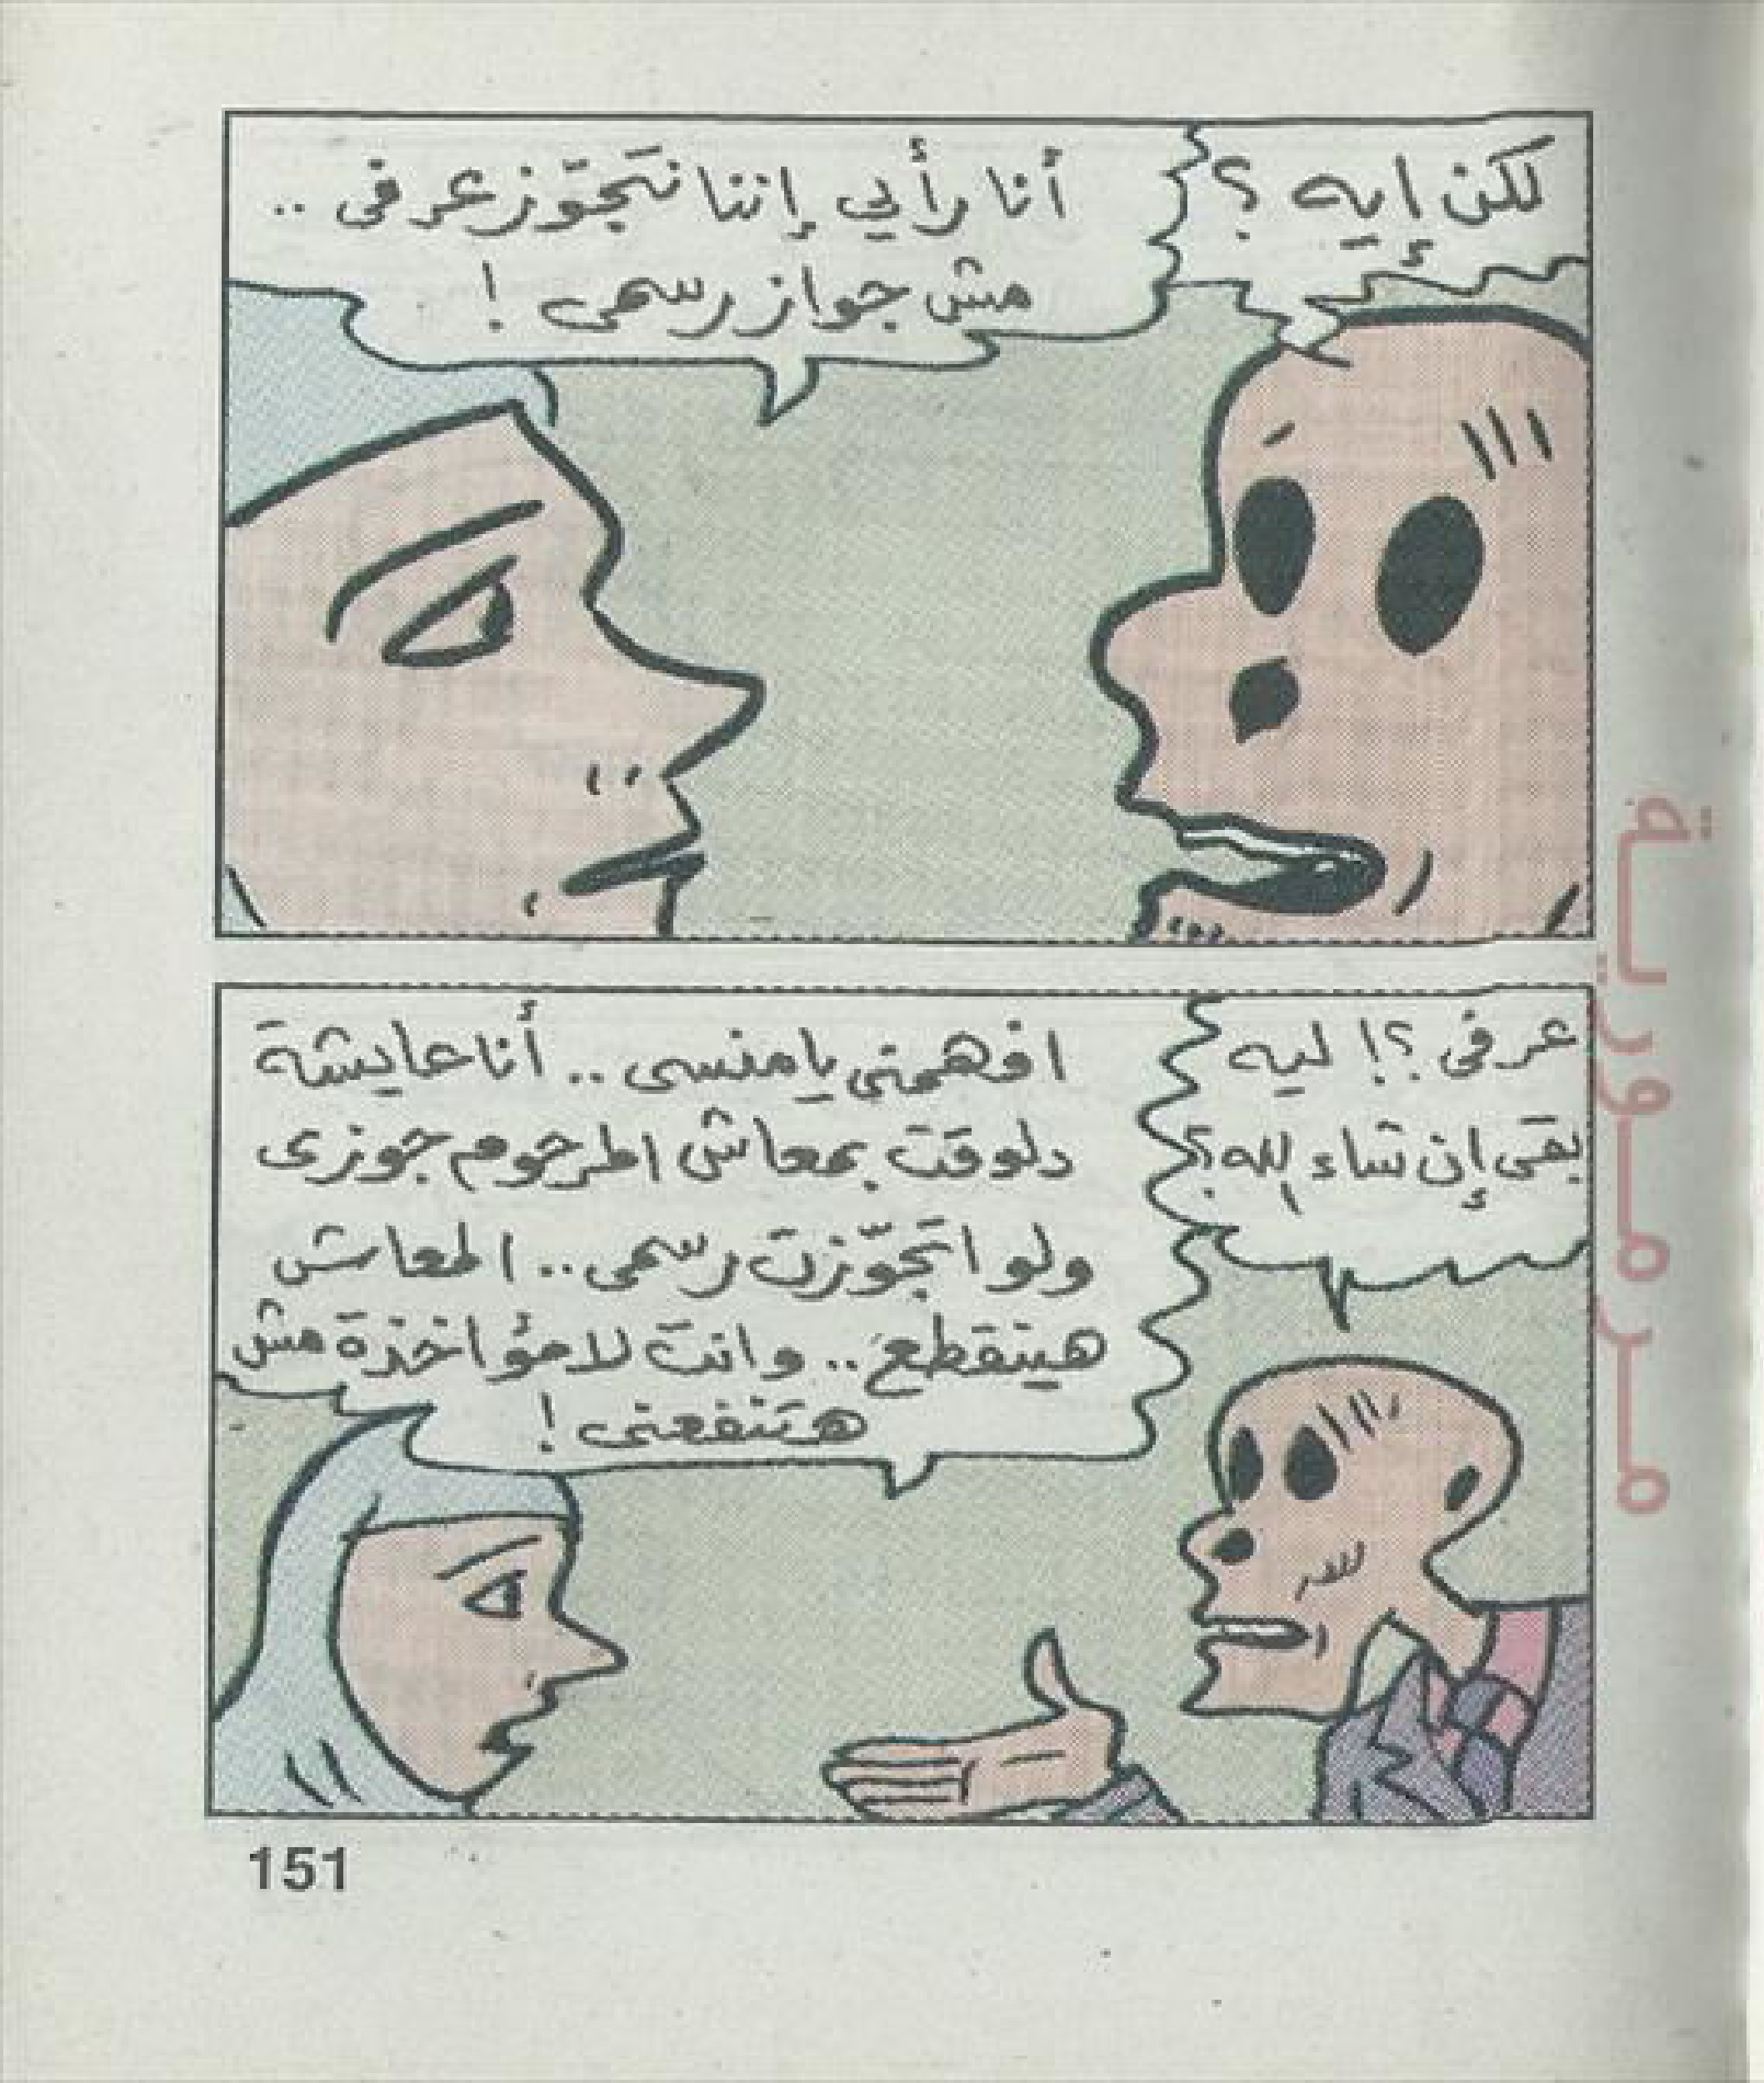 لكن إيه ؟
أنا رأيي إننا نتجوّز عرفى ..
مش جواز رسمى !
عرفى ؟! ليه
بقى إن شاء الله ؟
افهمنى يا منسى .. أنا عايشة
دلوقت بمعاش المرحوم جوزى
ولو اتجوّزت رسمى .. المعاش
هينقطع .. وانت لا مؤاخذة مش
هتنفعنى !
151
مرمورية